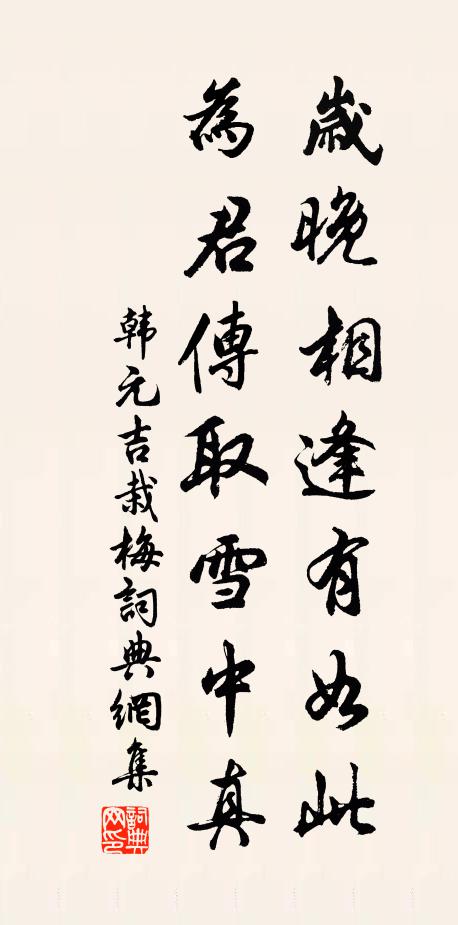 歲晚相逢有如此
為君傳取雪中真
韩元吉栽梅詞典網集
詞典网印